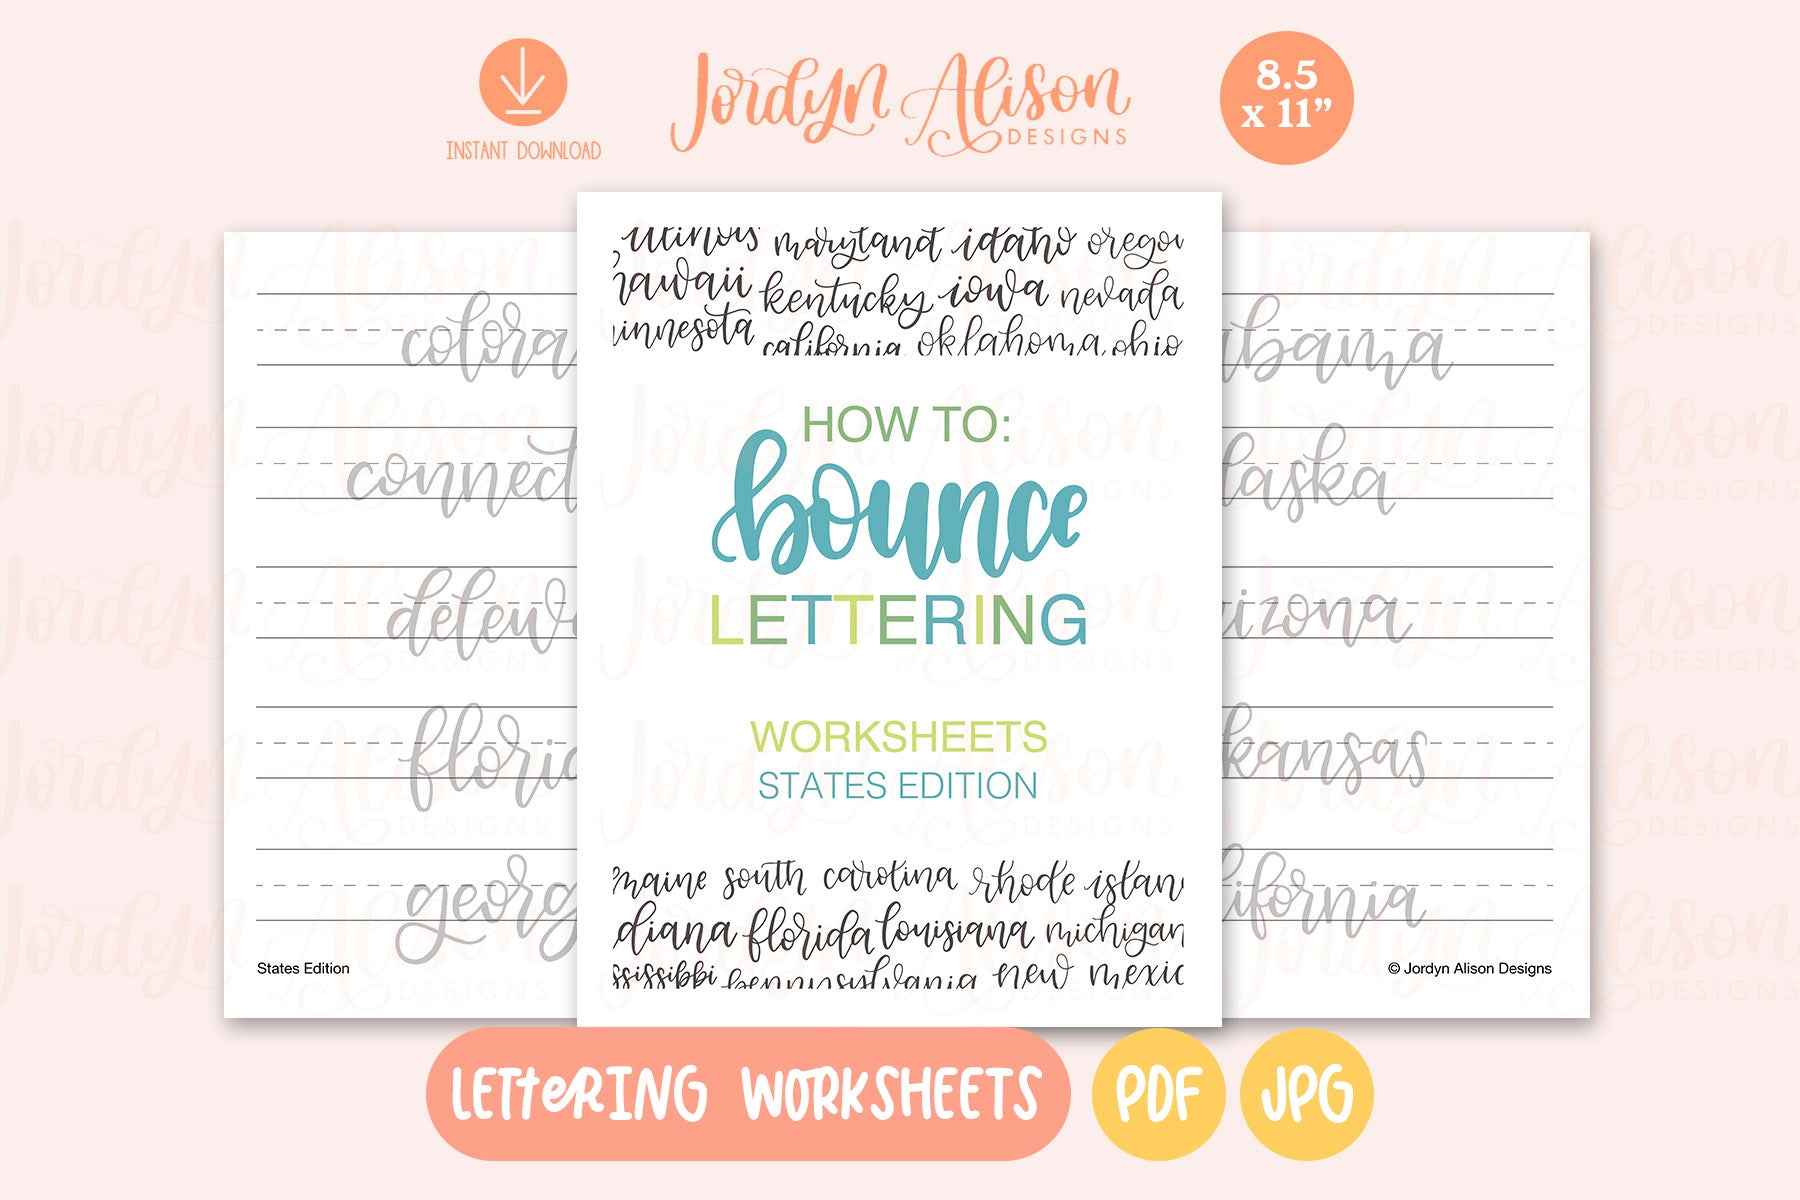 INSTANT DOWNLOAD
Jordyn Alison
DESIGNS
8.5
x 11”
illinois maryland idaho oregon
hawaii kentucky iowa nevada
innesota california oklahoma ohio
HOW TO:
bounce
LETTERING
WORKSHEETS
STATES EDITION
maine south carolina rhode islan
diana florida louisiana michigan
ssissippi pennsylvania new mexic
colora
connect
delew
florid
georg
States Edition
abama
laska
izona
kansas
lifornia
© Jordyn Alison Designs
LETTERING WORKSHEETS
PDF
JPG